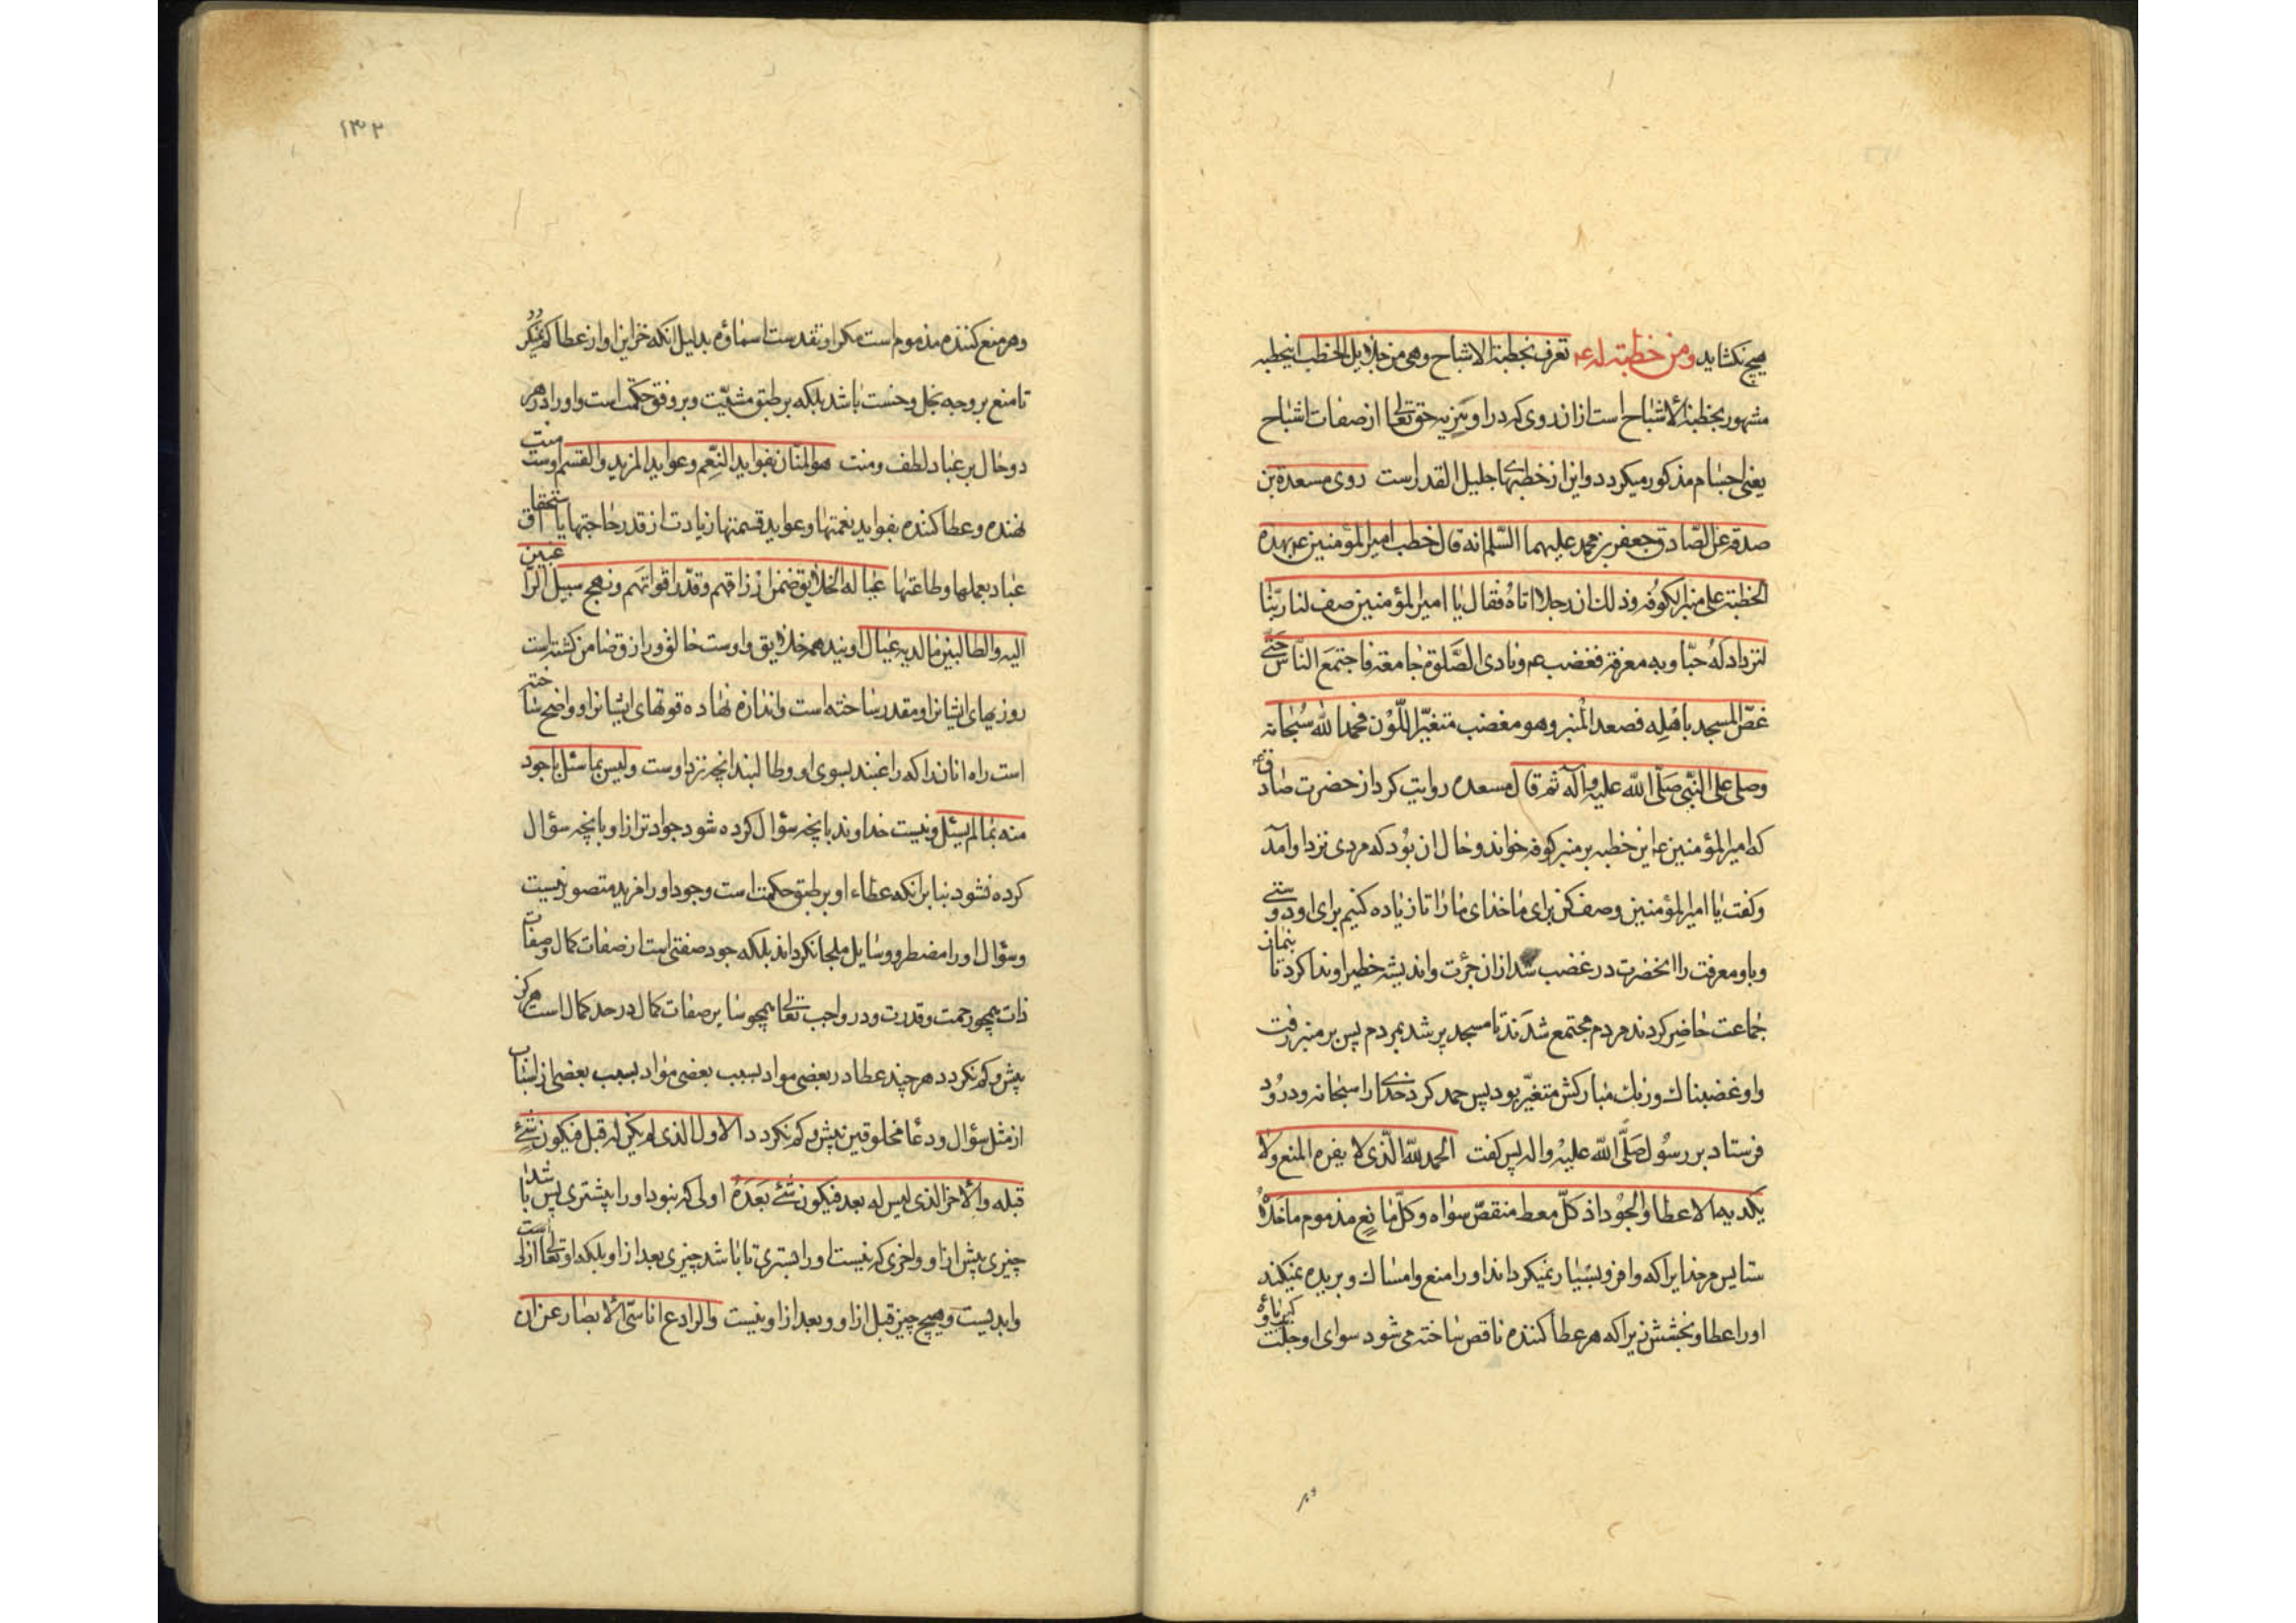 هیچ نکشاید ومن خطبته له ع تعرف بخطبة الاشباح وهی من جلایل الخطب اینخطبه
مشهور بخطبة الأشباح است از ان روی که در او تنزیه حق تعالی از صفات اشباح
یعنی اجسام مذکور میکردد واین از خطبهای جلیل القدر است روی مسعدة بن
صدقه عن الصادق جعفر بن محمد علیهما السلم انه قال خطب امیرالمؤمنین ع بهذه
الخطبة علی منبر الکوفه وذلک ان رجلا اتاه فقال یا امیرالمؤمنین صف لنا ربنا
لنزداد له حبا وبه معرفة فغضب ع ونادی الصلوة جامعة فاجتمع الناس حتی
غص المسجد باهله فصعد المنبر وهو مغضب متغیر اللون فحمد الله سبحانه
وصلی علی النبی صلی الله علیه وآله ثم قال مسعده روایت کرد از حضرت صادق ع
که امیرالمؤمنین ع این خطبه بر منبر کوفه خواند وحال ان بود که مردی نزد او آمد
وکفت یا امیرالمؤمنین وصف کن برای ما خدای ما را تا زیاده کنیم برای او دوستی
وباو معرفت را انحضرت در غضب شد از ان جرئت واندیشه خطیر او ندا کرد تا بنماز
جماعت حاضر کردند مردم مجتمع شدند تا مسجد پر شد بمردم پس بر منبر رفت
واو غضبناک ورنک مبارکش متغیر بود پس حمد کرد خدای را سبحانه ودرود
فرستاد بر رسول صلی الله علیه واله پس کفت الحمد لله الذی لا یفره المنع ولا
یکدیه الاعطا والجود اذ کل معط منتقص سواه وکل مانع مذموم ما خلاه
ستایس مر خدایرا که وافر وبسیار نمیکرداند او را منع وامساک وبریده نمیکند
او را عطا وبخشش زیرا که هر عطا کننده ناقص ساخته می شود سوای او جلت کبریاؤه و
وهر منع کننده مذموم است مکر او تقدست اسماؤه بدلیل انکه خزاین او از عطا کم نمیکردد
تا منع بر وجه بخل وخست باشد بلکه بر طبق مشیت وبر وفق حکمت است واو را در هر
دو حال بر عباد لطف ومنت هو المنان بفواید النعم وعواید المزید والقسم اوست منت
نهنده وعطا کننده بفواید نعمتها وعواید قسمتها زیادت از قدر حاجتها یا استحقاق
عباد بعملها وطاعتها عیاله الخلایق ضمن ارزاقهم وقدر اقواتهم ونهج سبیل الراغبین
الیه والطالبین ما لدیه عیال اویند همه خلایق واوست خالق ورازق ضامن کشته است
روزیهای ایشانرا ومقدر ساخته است واندازه نهاده قوتهای ایشانرا وواضح ساخته
است راه انان را که راغبند بسوی او وطالبند انچه نزد اوست ولیس بما سئل باجود
منه بما لم یسئل ونیست خداوند بانچه سؤال کرده شود جوادتر از او بانچه سؤال
کرده نشود بنابر انکه عطاء او بر طبق حکمت است وجود او را مزید متصور نیست
وسؤال او را مضطر ووسایل ملجا نکرداند بلکه جود صفتی است از صفات کمال وصفات
ذات همچو رحمت وقدرت ودر واجب تعالی همچو سایر صفات کمال در حد کمال است هرکز
بیش وکم نکردد هر چند عطا در بعضی مواد بسبب بعضی مواد بسبب بعضی از اسباب
از مثل سؤال ودعا مخلوقین بیش وکم نکردد الاول الذی لم یکن له قبل فیکون شئ
قبله والاخر الذی لیس له بعد فیکون شئ بعده اولی که نبود او را پیشتری پس باشد
چیزی پیش از او واخری که نیست او را بستری تا باشد چیزی بعد از او بلکه او تعالی ازلی است
وابدیست وهیچ چیز قبل از او وبعد از او نیست والرادع اناسی الابصار عن ان
۱۳۲